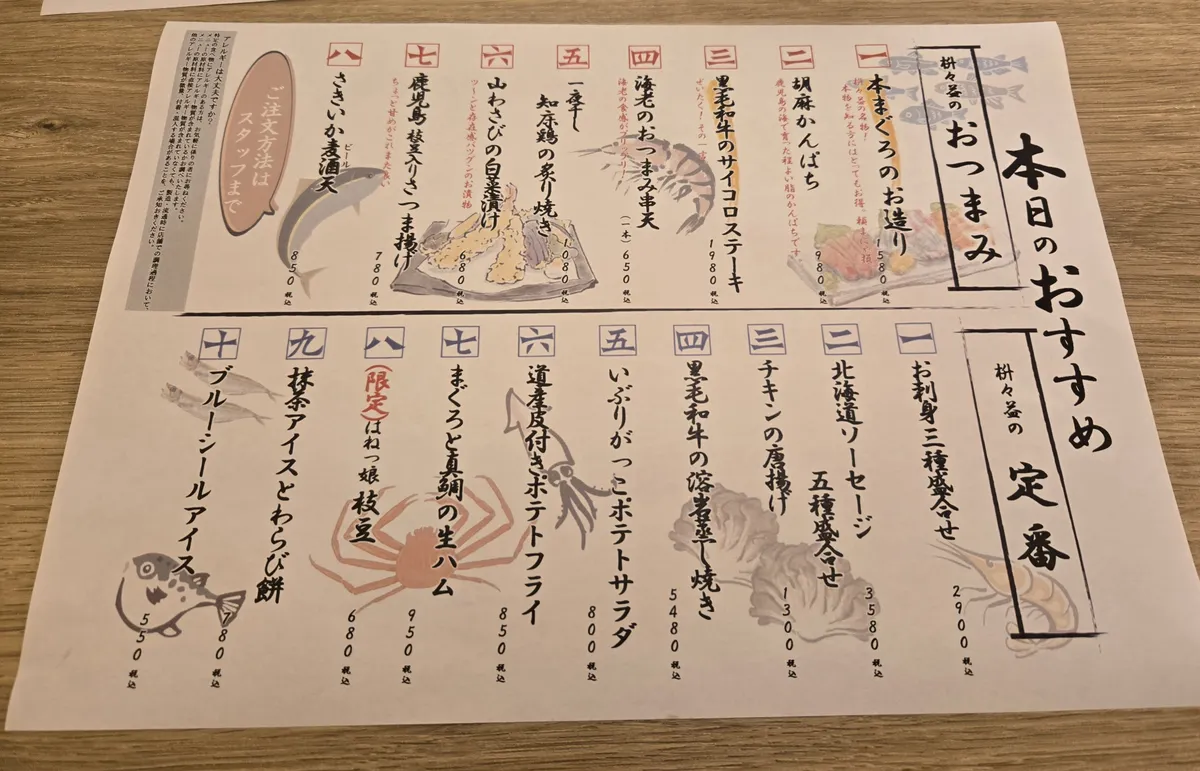 本日のおすすめ
枡々益の
おつまみ
一
本まぐろのお造り
1580 税込
二
胡麻かんぱち
鹿児島の海で育った程よい脂のかんぱちです。
980 税込
三
黒毛和牛のサイコロステーキ
ぜいたく！その一言
1980 税込
四
海老のおつまみ串天
(一本) 650 税込
五
一夜干し
知床鶏の炙り焼き
1080 税込
六
山わさびの白菜漬け
680 税込
七
鹿児島 枝豆入りさつま揚げ
780 税込
八
さきいか麦酒天
ビール
850 税込
ご注文方法は
スタッフまで
アレルギーは大丈夫ですか？
枡々益の
定番
一
お刺身三種盛合せ
2900 税込
二
北海道ソーセージ
五種盛合せ
3580 税込
三
チキンの唐揚げ
1300 税込
四
黒毛和牛の溶岩蒸し焼き
5480 税込
五
いぶりがっこポテトサラダ
800 税込
六
道産皮付きポテトフライ
850 税込
七
まぐろと真鯛の生ハム
950 税込
八
(限定)はねっ娘 枝豆
680 税込
九
抹茶アイスとわらび餅
780 税込
十
ブルーシールアイス
550 税込